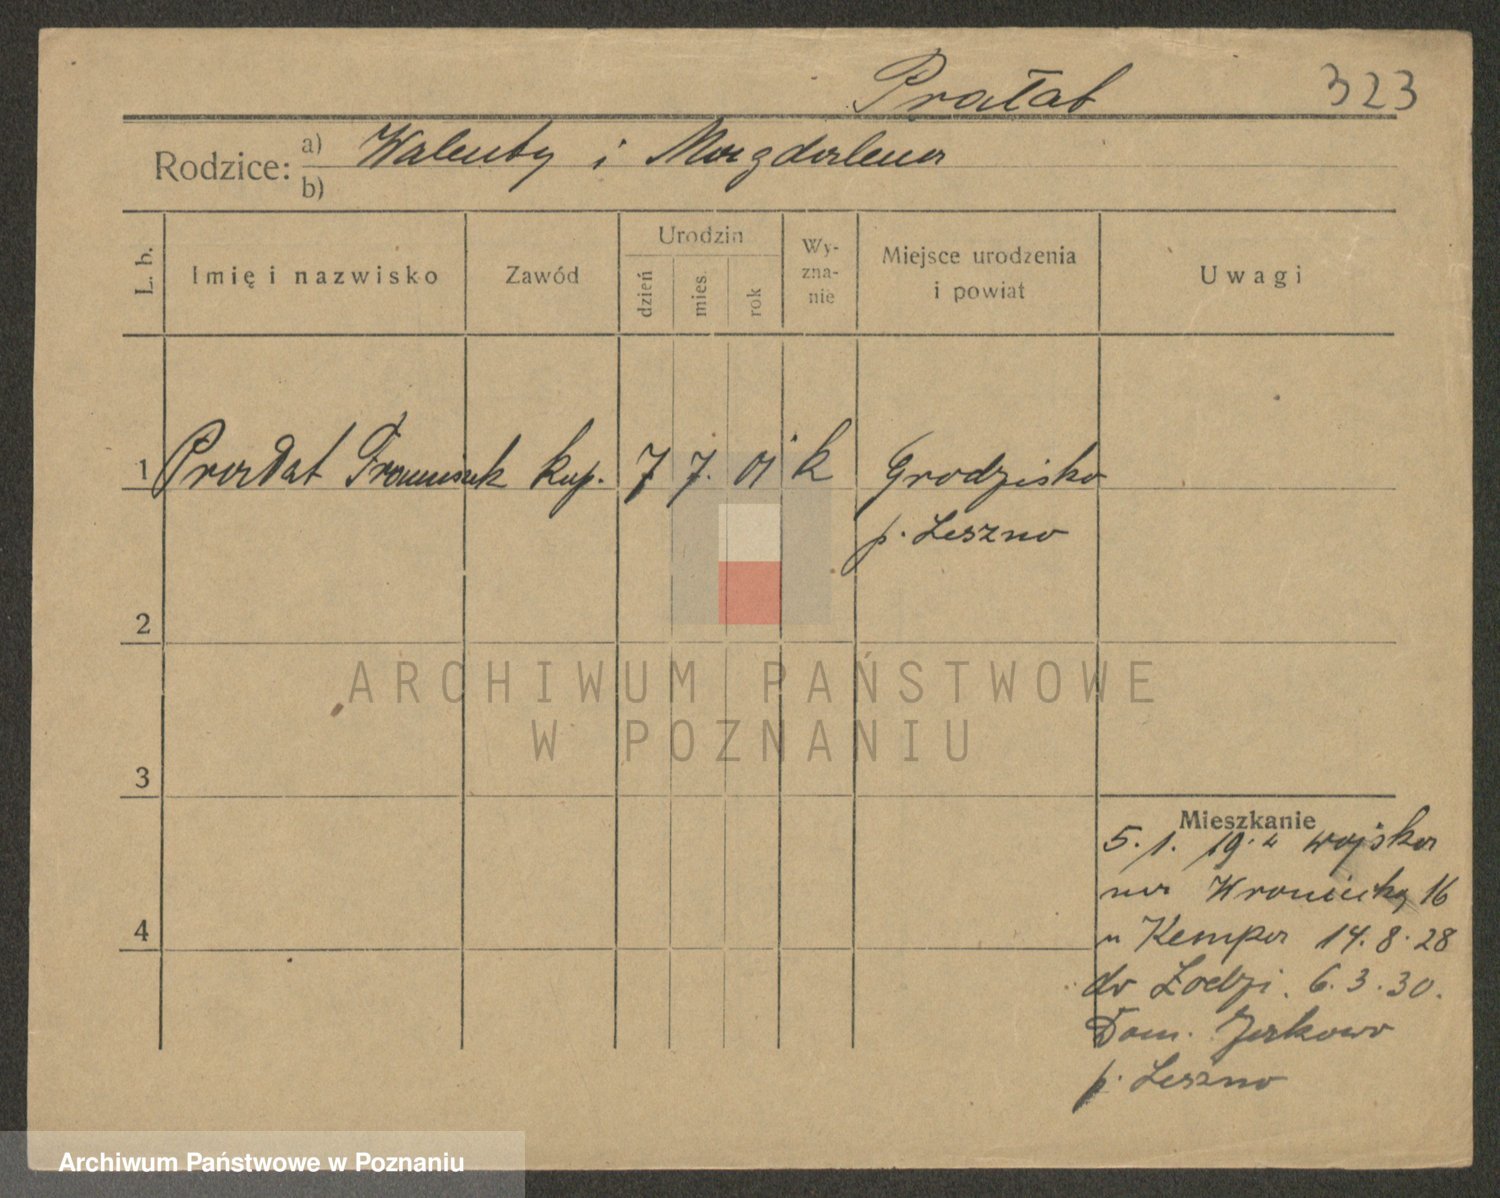 Prałat 323
Rodzice: a) Walenty i Magdalena
b)
L. b. Imię i nazwisko Zawód Urodzin dzień mies. rok Wy-zna-nie Miejsce urodzenia i powiat Uwagi
1 Prałat Franciszek kup. 7 7. 01 k Grodzisko
p. Leszno
2
ARCHIWUM PAŃSTWOWE
W POZNANIU
3
Mieszkanie
5. 1. 19. wojska
na Wroniecką 16
u Kempa 14. 8. 28
4
do Łodzi. 6. 3. 30.
Dom. Jerkowo
p. Leszno
Archiwum Państwowe w Poznaniu